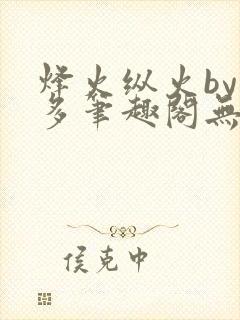 烽火纵火by
多笔趣阁無
侯克中